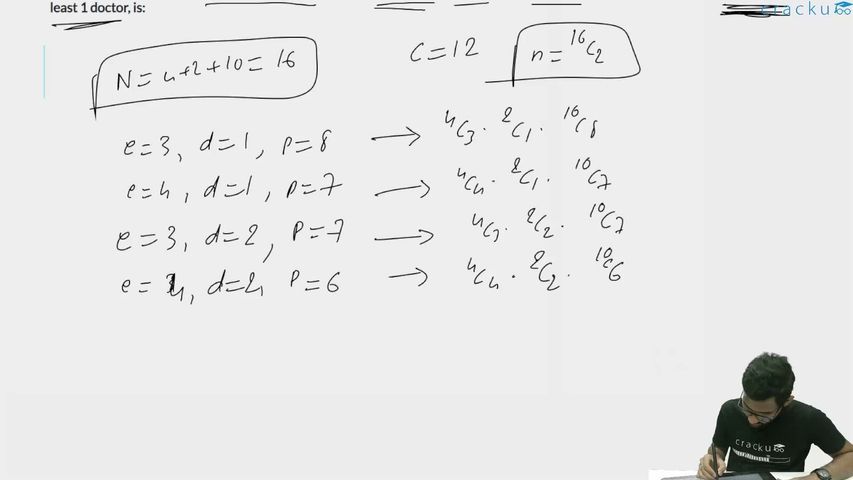 least 1 doctor, is:
cracku
N = 4+2+10 = 16
C = 12
n = ¹⁶C₂
e=3, d=1, p=8 → ⁴C₃ · ²C₁ · ¹⁰C₈
e=4, d=1, p=7 → ⁴C₄ · ²C₁ · ¹⁰C₇
e=3, d=2, p=7 → ⁴C₃ · ²C₂ · ¹⁰C₇
e=4, d=2, p=6 → ⁴C₄ · ²C₂ · ¹⁰C₆
cracku